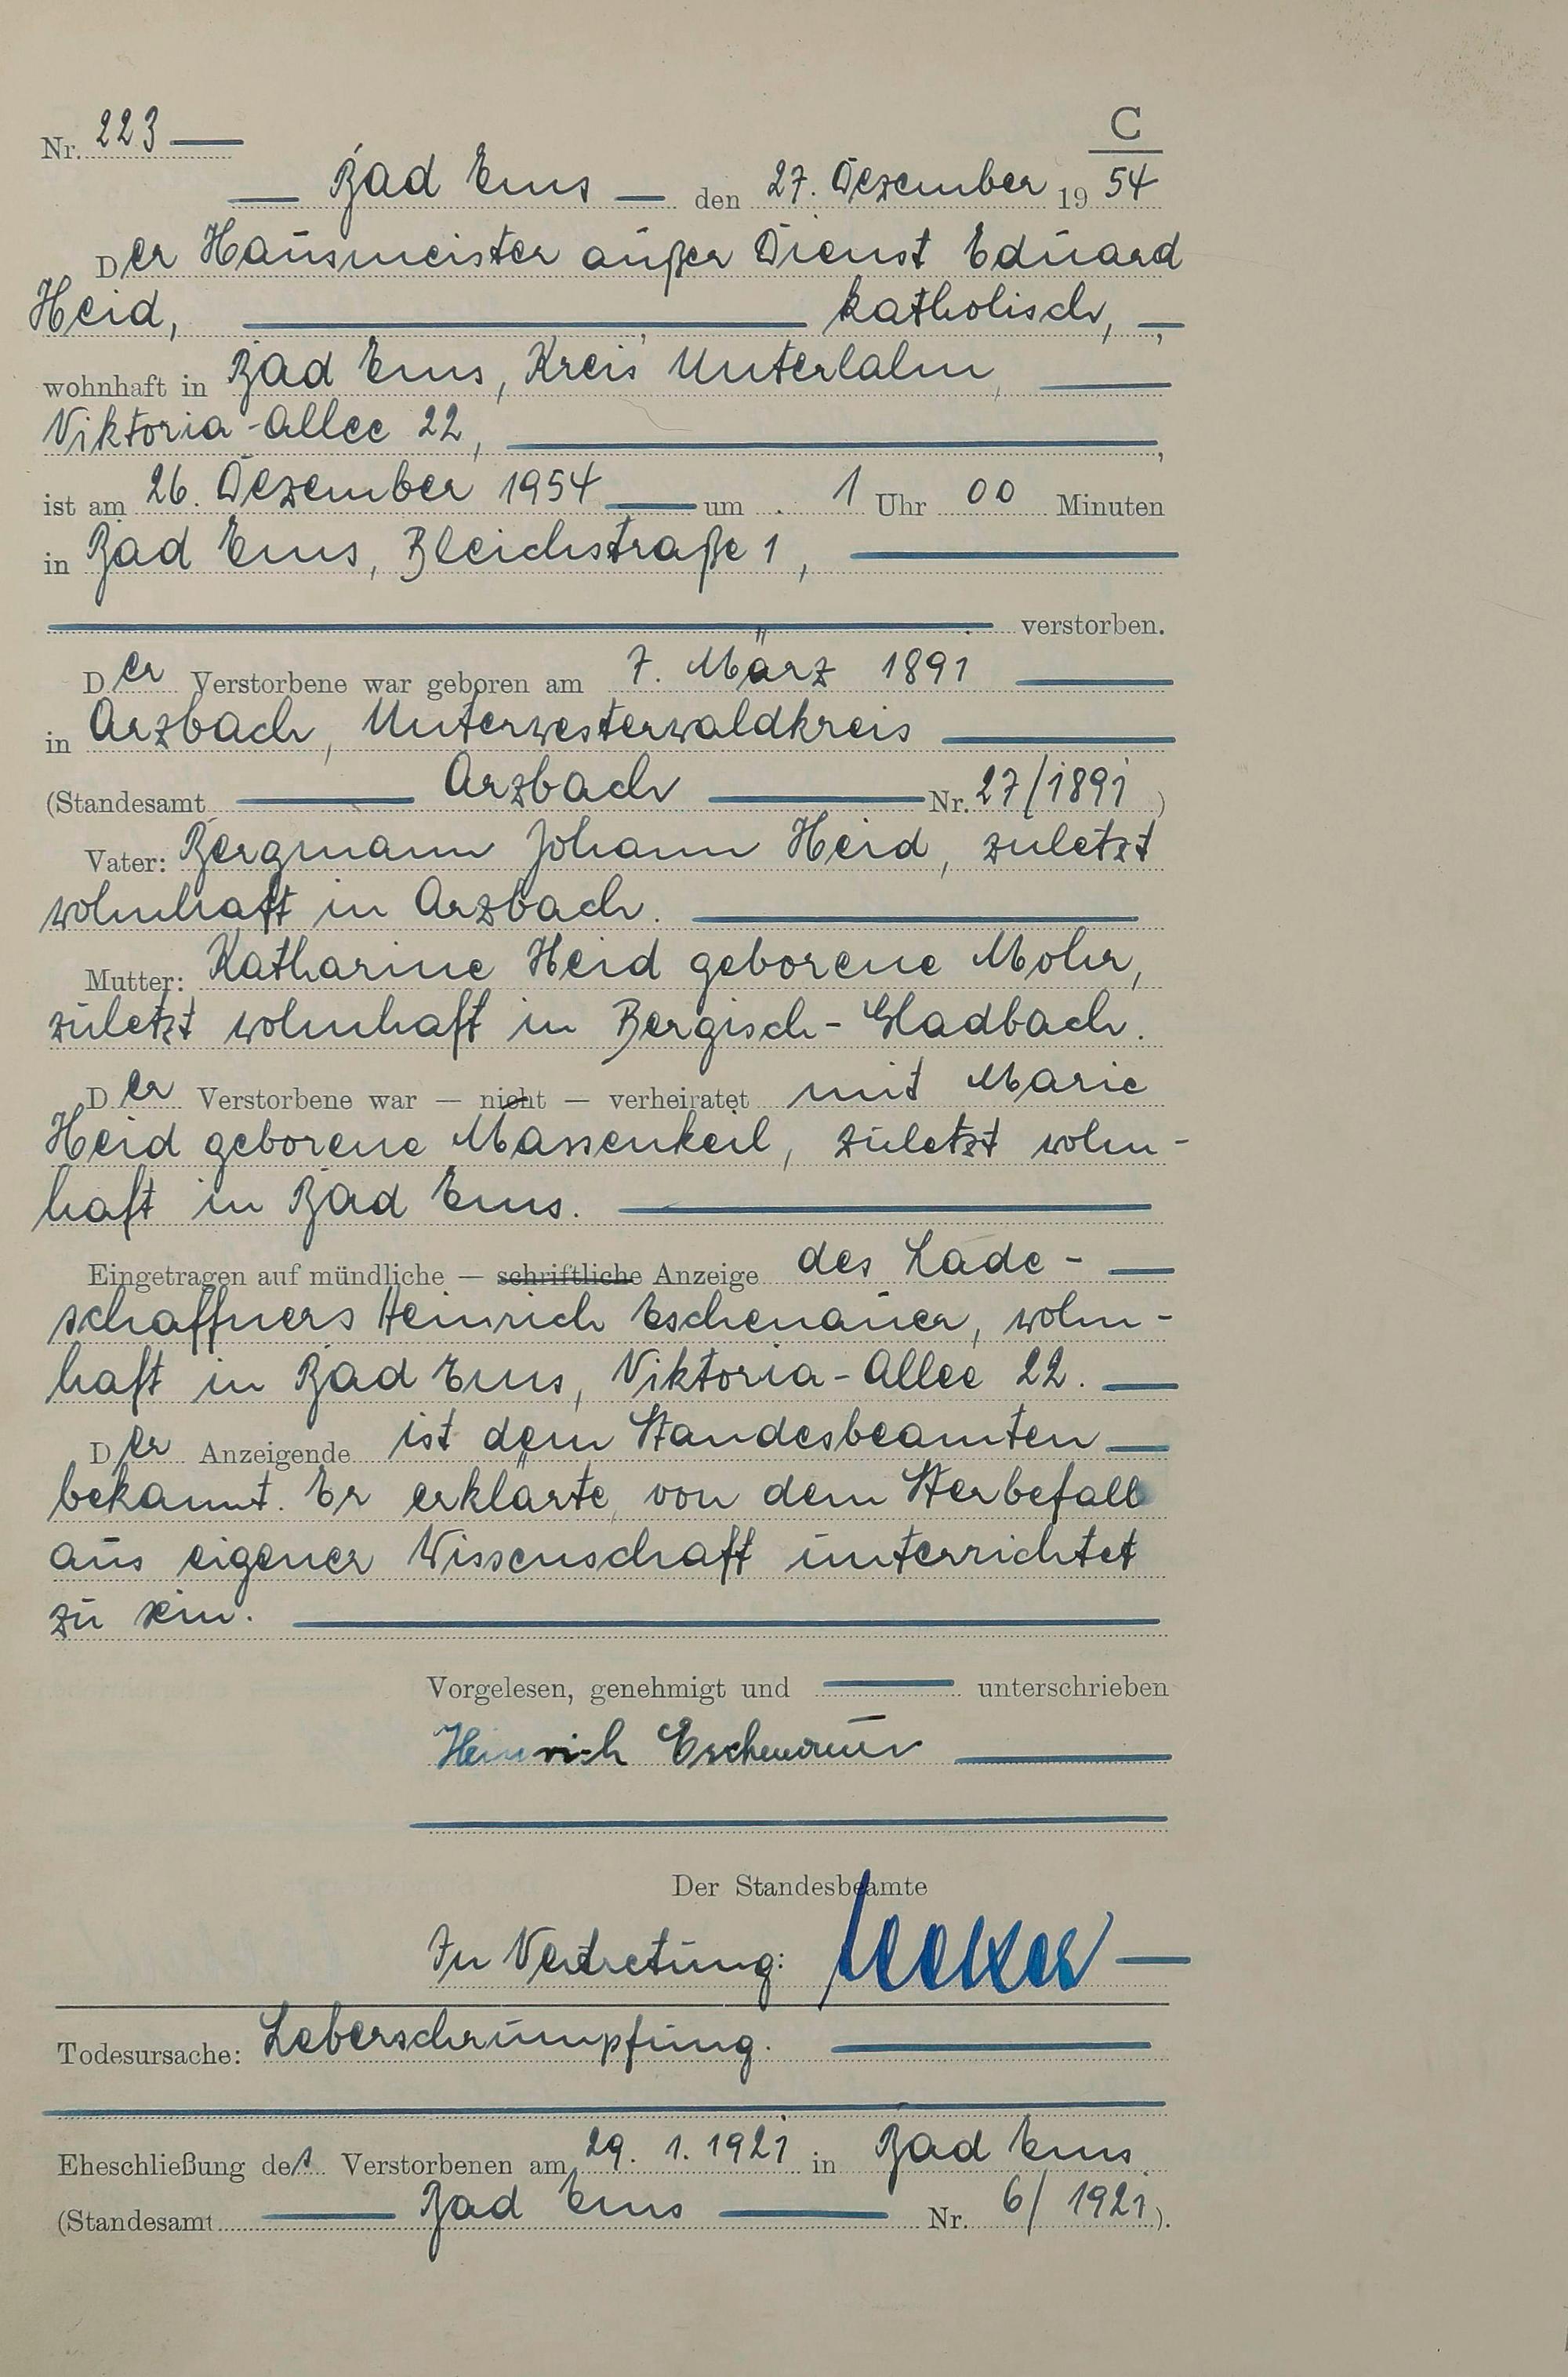 C
Nr. 223
Bad Ems den 27. Dezember 19 54
Der Hausmeister außer Dienst Eduard
Heid, katholisch,
wohnhaft in Bad Ems, Kreis Unterlahn,
Viktoria-Allee 22,
ist am 26. Dezember 1954 um 1 Uhr 00 Minuten
in Bad Ems, Bleichstraße 1,
verstorben.
Der Verstorbene war geboren am 7. März 1891
in Arzbach, Unterwesterwaldkreis
(Standesamt Arzbach Nr. 27/1891)
Vater: Bergmann Johann Heid, zuletzt
wohnhaft in Arzbach.
Mutter: Katharine Heid geborene Mohr,
zuletzt wohnhaft in Bergisch-Gladbach.
Der Verstorbene war — nicht — verheiratet mit Marie
Heid geborene Massenkeil, zuletzt wohn-
haft in Bad Ems.
Eingetragen auf mündliche — schriftliche Anzeige des Lade-
schaffners Heinrich Eschenauer, wohn-
haft in Bad Ems, Viktoria-Allee 22.
Der Anzeigende ist dem Standesbeamten
bekannt. Er erklärte, von dem Sterbefall
aus eigener Wissenschaft unterrichtet
zu sein.
Vorgelesen, genehmigt und unterschrieben
Heinrich Eschenauer
Der Standesbeamte
In Vertretung:
Todesursache: Leberschrumpfung.
Eheschließung des Verstorbenen am 29. 1. 1921 in Bad Ems
(Standesamt Bad Ems Nr. 6/1921).